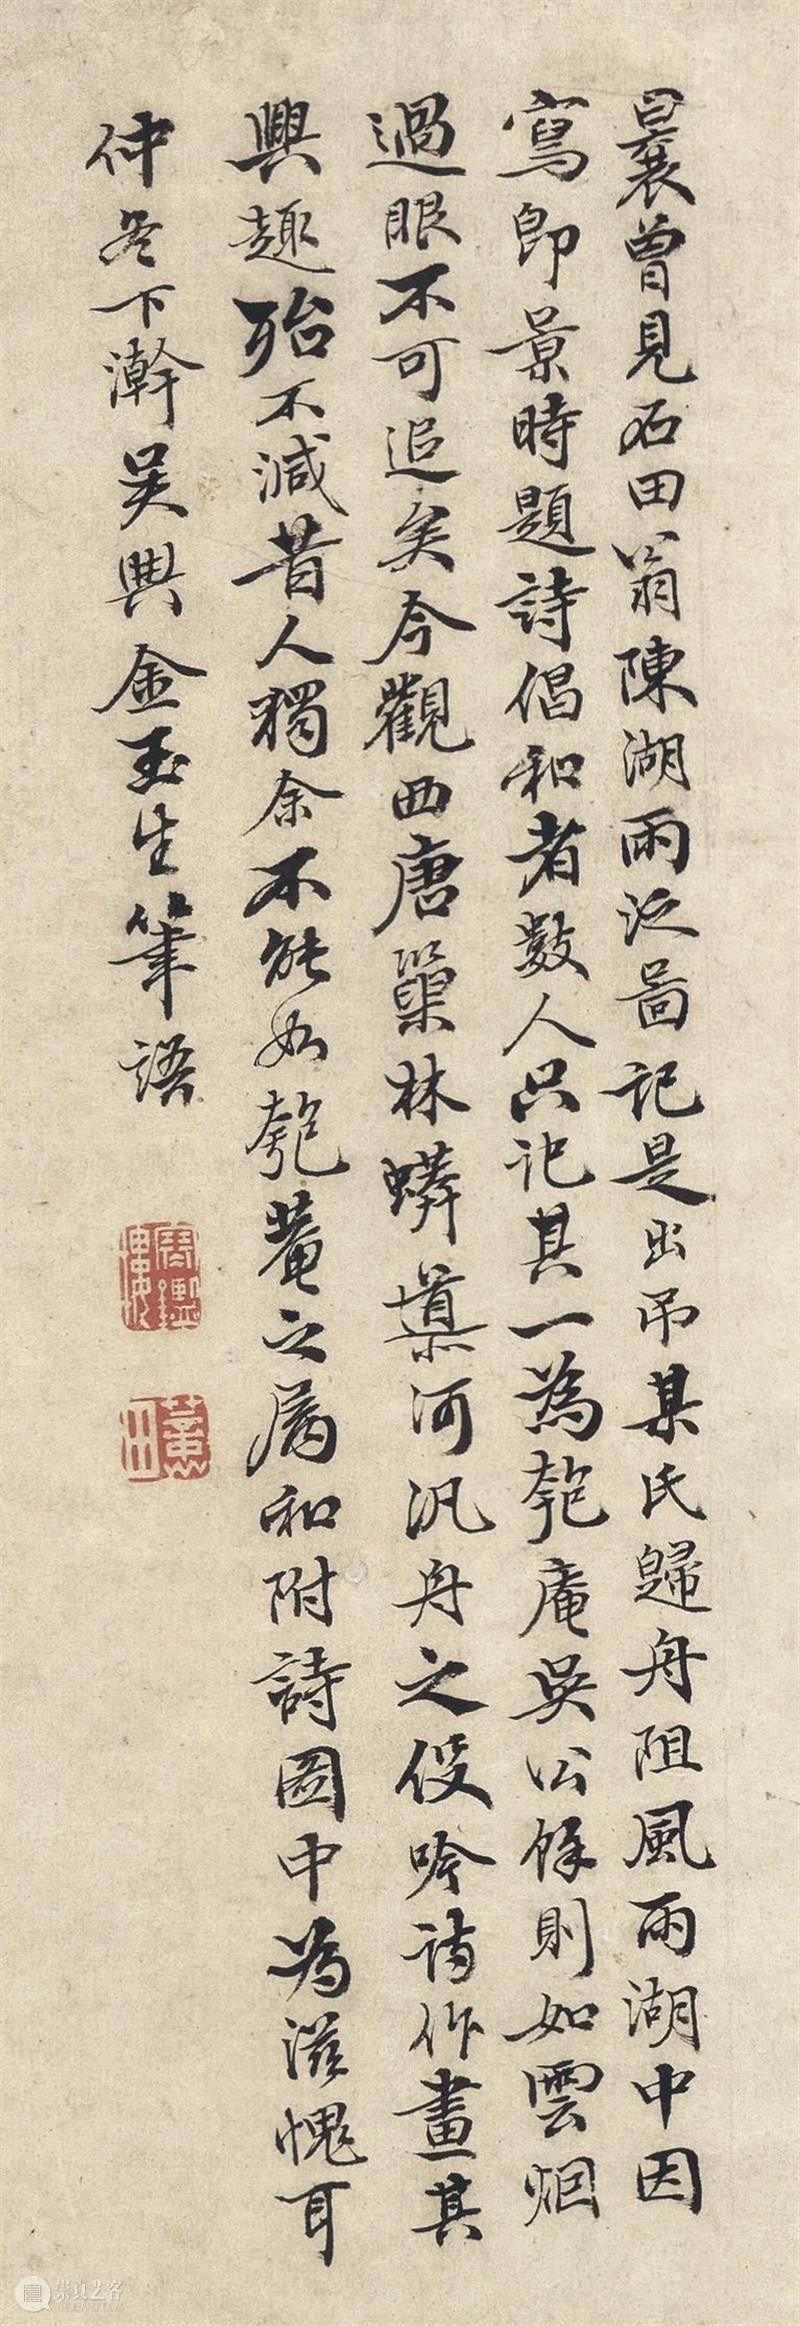 曩曾見石田翁陳湖雨泛圖記是出吊某氏歸舟阻風雨湖中因
寫即景時題詩倡和者數人只記其一為匏庵吳公餘則如雲烟
過眼不可追矣今觀西唐巢林蠎導河汎舟之役吟詩作畫其
興趣殆不減昔人獨余不能如匏菴之屬和附詩圖中為滋愧耳
仲冬下澣吳興金玉生筆語
崇真艺客